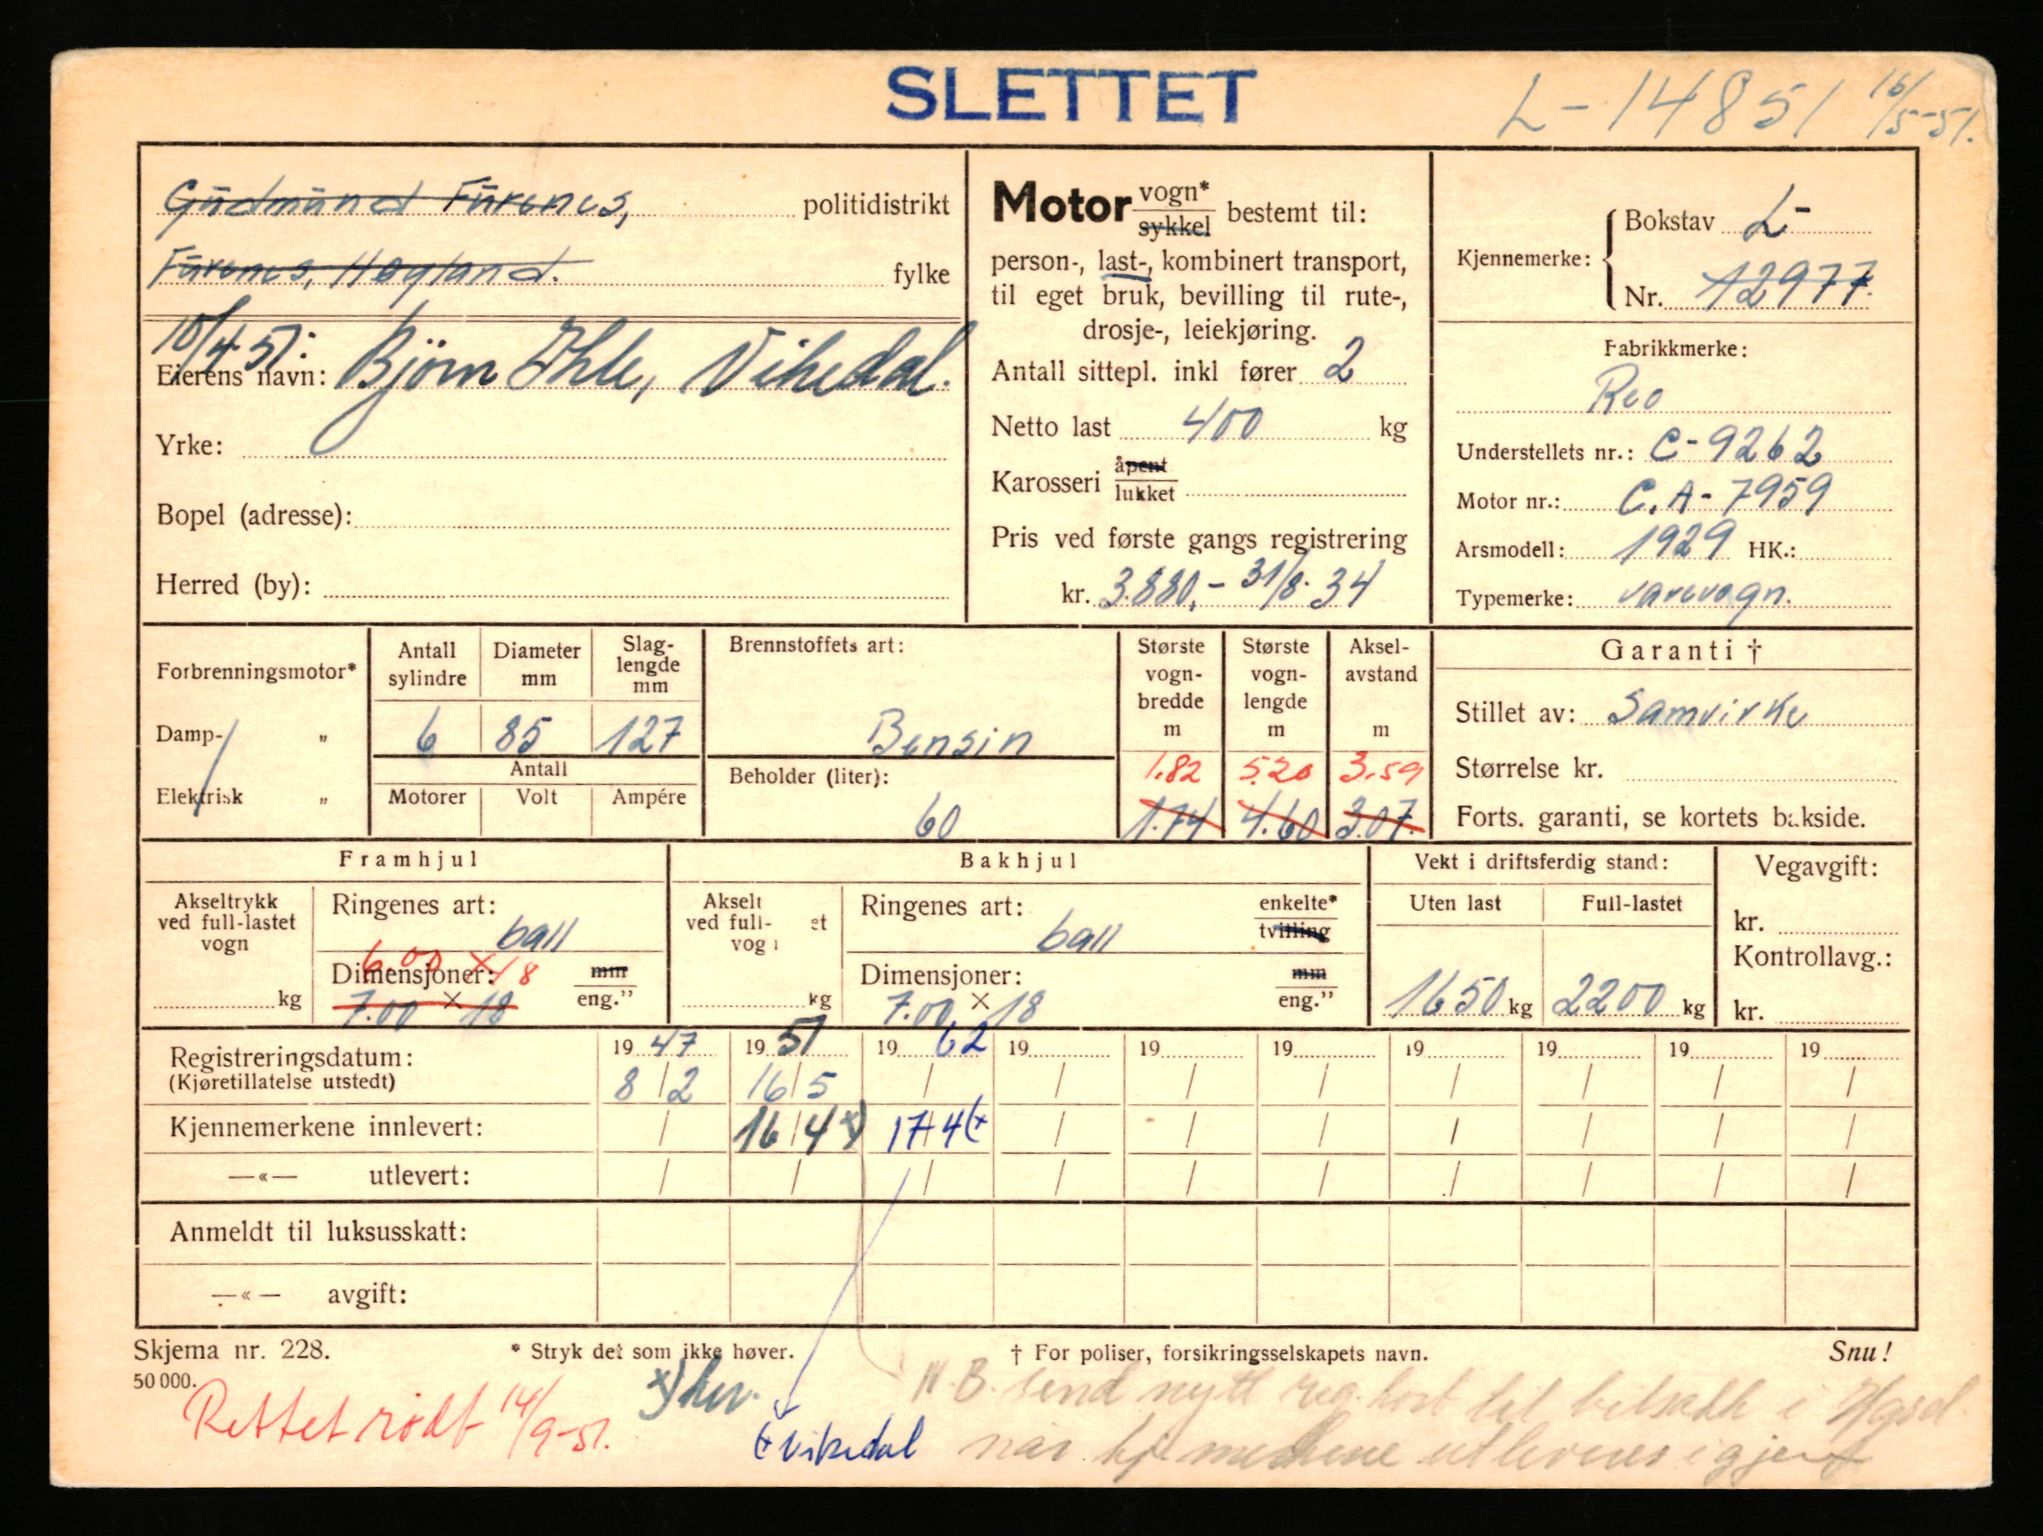 SLETTET
L-14851 16/5-51.
Gudmund Furenes, politidistrikt
Furenes, Høgland. fylke
Eierens navn: Bjørn Ihle, Vikedal.
Yrke:
Bopel (adresse):
Herred (by):
Motor vogn* sykkel bestemt til:
person-, last-, kombinert transport,
til eget bruk, bevilling til rute-,
drosje-, leiekjøring.
Antall sittepl. inkl fører 2
Netto last 400 kg
Karosseri åpent lukket
Pris ved første gangs registrering
kr. 3.880,- 31/8-34
Kjennemerke: Bokstav L-
Nr. 12977
Fabrikkmerke:
Reo
Understellets nr.: C-9262
Motor nr.: C.A-7959
Arsmodell: 1929 HK.:
Typemerke: varevogn.
Forbrenningsmotor*
Damp- „
Elektrisk „
Antall sylindre
Diameter mm
Slag-lengde mm
6 85 127
Antall
Motorer Volt Ampére
Brennstoffets art:
Bensin
Beholder (liter):
60
Største vogn-bredde m
Største vogn-lengde m
Aksel-avstand m
1.82 5.20 3.59
1.74 4.60 3.07.
Garanti †
Stillet av: Samvirke
Størrelse kr.
Forts. garanti, se kortets bakside.
Framhjul
Akseltrykk
ved full-lastet
vogn
kg
Ringenes art:
ball
6.00 x 18
Dimensjoner: mm
7.00 x 18 eng.”
Bakhjul
Akselt
ved full- et
vog
kg
Ringenes art: enkelte*
ball tvilling
Dimensjoner: mm
7.00 x 18 eng.”
Vekt i driftsferdig stand:
Uten last Full-lastet
1650 kg 2200 kg
Vegavgift:
kr.
Kontrollavg.:
kr.
Registreringsdatum: 1947 1951 1962 19 19 19 19 19 19 19
(Kjøretillatelse utstedt) 8/2 16/5 / / / / / / / /
Kjennemerkene innlevert: / 16/4 x) 17/4 (+ / / / / / / /
—«— utlevert: / / / / / / / / / /
Anmeldt til luksusskatt:
—«— avgift:
Skjema nr. 228. * Stryk det som ikke høver. † For poliser, forsikringsselskapets navn. Snu!
50 000.
Rettet rødt 14/9-51.
x) her.
(+ Vikedal
N.B. send nytt reg. kort til bilsakk i
når kj. merkene utleveres igjen